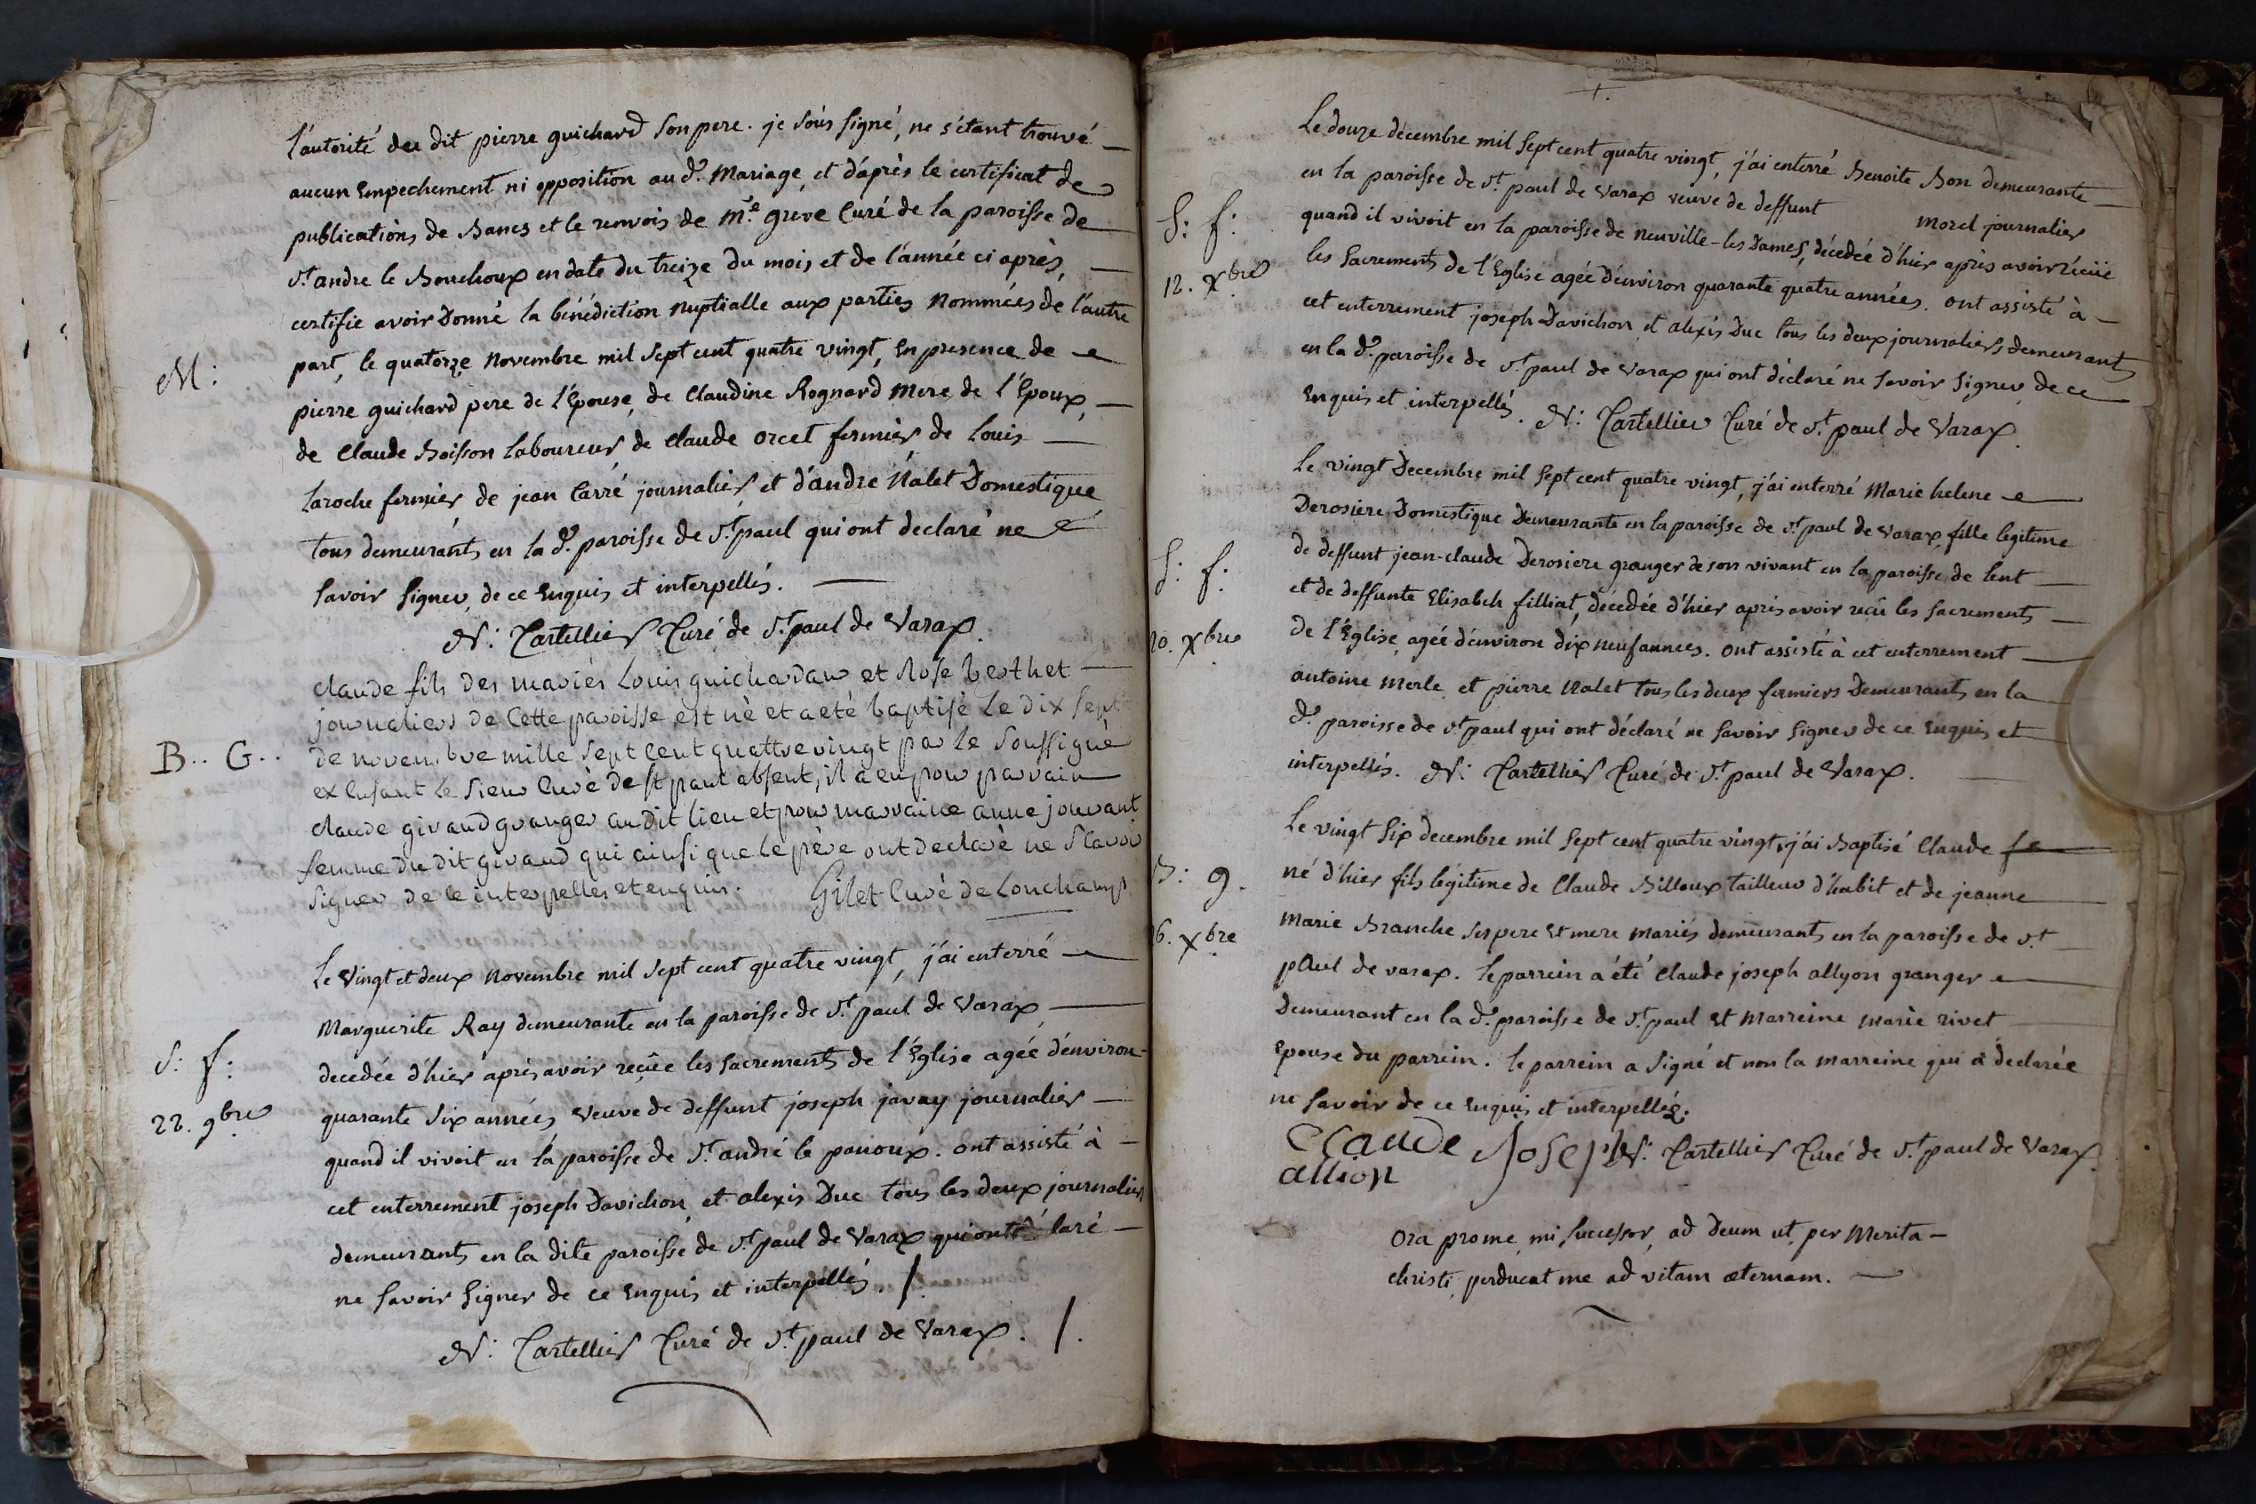 l'autorité du dit pierre guichard son pere. je sous signé, ne s'étant trouvé
aucun Empechement ni opposition au d.^e Mariage, et d'après le certificat de
publications de Bancs et le renvois de M.^re greve Curé de la paroisse de
S.^t andre le Bouchoux en date du treize du mois et de l'année ci après,
certifie avoir Donné la bénédiction nuptialle aux parties nommées de l'autre
M:
part, le quatorze novembre mil sept cent quatre vingt, en presence de
pierre guichard pere de l'Epouse, de Claudine Rognard Mere de l'Epoux,
de Claude Boisson laboureur de Claude orcet fermier de Louis
laroche fermier de jean Carré journalier et d'andre Nalet Domestique
tous demeurants en la d.^e paroisse de S.^t paul qui ont declaré ne
savoir signer, de ce Enquis et interpellés.
N: Cartellier Curé de S.^t paul de Varax.
claude fils des mariès Louis guichardan et Rose berthet
journaliers de Cette paroisse est nè et a etè baptisè Le dix sept
B.. G..
de novembre mille sept cent quattre vingt par le soussignè
claude girand granger au dit lieu et pour marraine anne jouvant
femme du dit girand qui ainsi que le père ont declarè ne scavoir
signer de ce interpelles et enquis. Gilet Curè de Lonchamp
Le Vingt et deux novembre mil sept cent quatre vingt, j'ai enterré
Marguerite Ray demeurante en la paroisse de S.^t paul de Varax
S: f:
decedée d'hier après avoir reçûe les sacrements de l'Eglise agée d'environ
22. 9^bre
quarante six années veuve de deffunt joseph javay journalier
quand il vivoit en la paroisse de S.^t andré le panoux. ont assisté à
cet enterrement joseph Davichon, et alexis Duc tous les deux journaliers
demeurants en la dite paroisse de S.^t paul de Varax qui ont déclaré
ne savoir signer de ce Enquis et interpellés ./.
N: Cartellier Curé de S.^t paul de Varax. /.
Le douze décembre mil sept cent quatre vingt, j'ai enterré Benoite Bon demeurante
en la paroisse de S.^t paul de Varax veuve de deffunt Morel journalier
S: f:
quand il vivoit en la paroisse de neuville-les Dames, décedée d'hier après avoir réçüe
12. X^bre
les sacrements de l'Eglise agée d'environ quarante quatre années. ont assisté à
cet enterrement joseph Davichon et alexis Duc tous les deux journaliers demeurants
en la d.^e paroisse de S.^t paul de Varax qui ont déclaré ne savoir signer de ce
Enquis et interpellés. N: Cartellier Curé de S.^t paul de Varax.
Le vingt Decembre mil sept cent quatre vingt, j'ai enterré Marie helene
Derosiere Domestique Demeurante en la paroisse de S.^t paul de Varax, fille legitime
S: f:
de deffunt jean-claude Derosiere granger de son vivant en la paroisse de lent
et de deffunte Elisabeh filliat, décedée d'hier après avoir reçu les sacrements
20. X^bre
de l'Eglise, agée d'environ dix neuf années. ont assisté à cet enterrement
antoine Merle et pierre Nalet tous les deux fermiers Demeurants en la
d.^e paroisse de S.^t paul qui ont déclaré ne savoir signer de ce Enquis et
interpellés. N: Cartellier Curé de S.^t paul de Varax.
Le vingt six decembre mil sept cent quatre vingt, j'ai Baptisé Claude
B: g.
né d'hier fils légitime de Claude Billoux tailleur d'habit et de jeanne
26. X^bre
Marie Branche ses pere Et mere mariés demeurants en la paroisse de S.^t
paul de varax. le parrein a été Claude joseph allyon granger
Demeurant en la d.^e paroisse de S.^t paul Et Marreine Marie rivet
Epouse du parrein. le parrein a signé et non la marreine qui a declarée
ne savoir de ce Enquis et interpellée.
Claude Joseph N: Cartellier Curé de S.^t paul de Varax.
allion
Ora pro me, mi successor, ad Deum ut, per Merita
christi, perducat me ad vitam æternam.